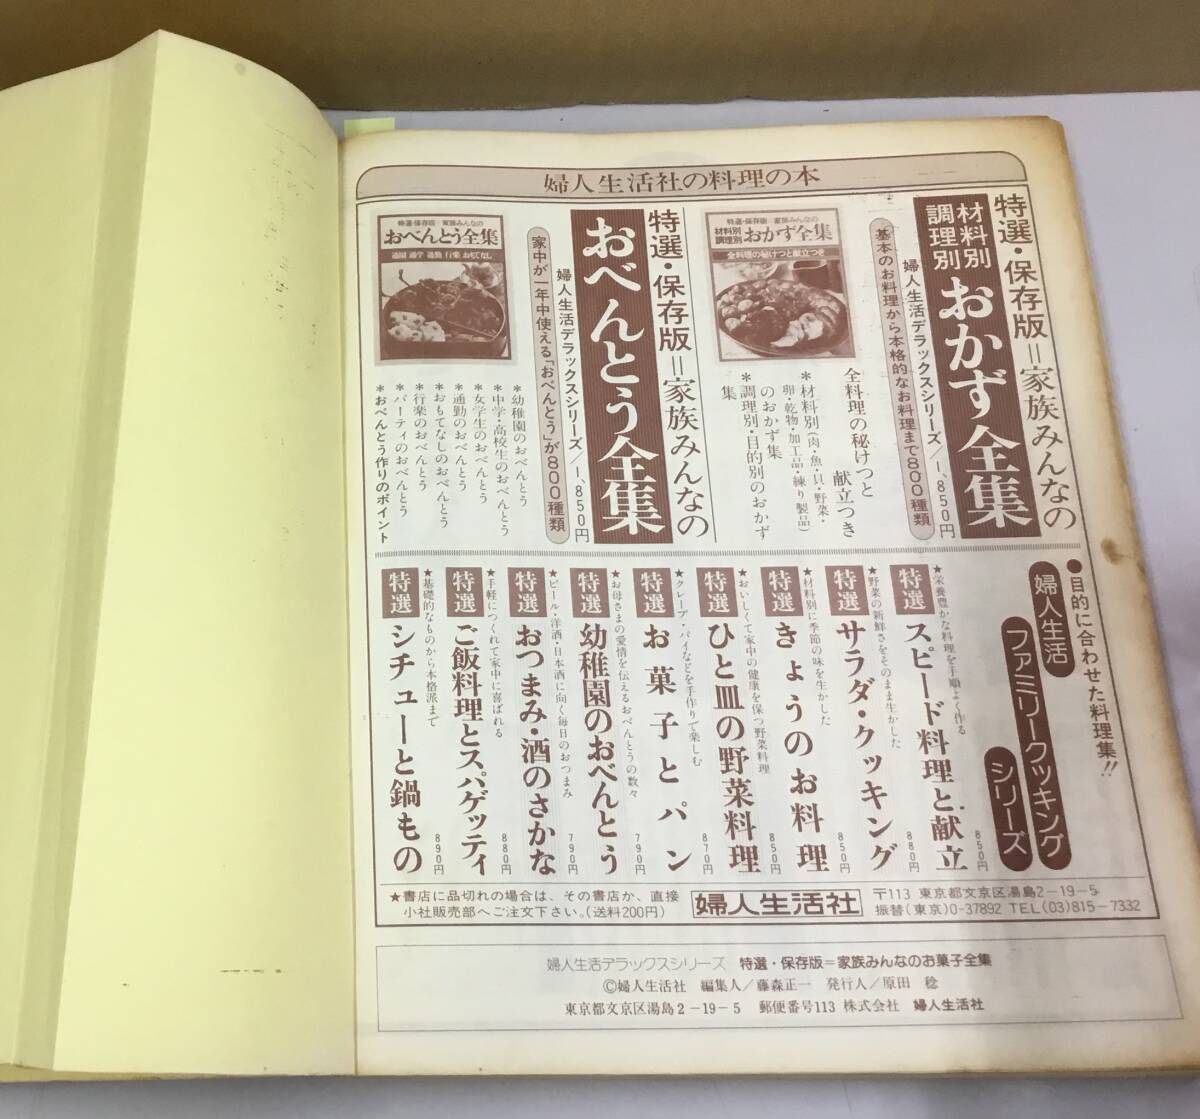 婦人生活社の料理の本
特選・保存版＝家族みんなの
材料別
調理別
おかず全集
婦人生活デラックスシリーズ／1,850円
基本のお料理から本格的なお料理まで800種類
特選・保存版 家族みんなの
材料別
調理別
おかず全集
全料理の秘けつと献立つき
全料理の秘けつと
献立つき
＊材料別（肉・魚・貝・野菜・
卵・乾物・加工品・練り製品）
のおかず集
＊調理別・目的別のおかず
集
特選・保存版＝家族みんなの
おべんとう全集
婦人生活デラックスシリーズ／1,850円
家中が一年中使える「おべんとう」が800種類
特選・保存版 家族みんなの
おべんとう全集
通園 通学 通勤 行楽 おもてなし
＊幼稚園のおべんとう
＊中学・高校生のおべんとう
＊女学生のおべんとう
＊通勤のおべんとう
＊おもてなしのおべんとう
＊行楽のおべんとう
＊パーティのおべんとう
＊おべんとう作りのポイント
●目的に合わせた料理集!!
婦人生活
ファミリークッキング
シリーズ
★栄養豊かな料理を手順よく作る
特選 スピード料理と献立 850円
★野菜の新鮮さをそのまま生かした
特選 サラダ・クッキング 880円
★材料別に季節の味を生かした
特選 きょうのお料理 850円
★おいしくて家中の健康を保つ野菜料理
特選 ひと皿の野菜料理 850円
★クレープ・パイなどを手作りで楽しむ
特選 お菓子とパン 870円
★お母さまの愛情を伝えるおべんとうの数々
特選 幼稚園のおべんとう 790円
★ビール・洋酒・日本酒に向く毎日のおつまみ
特選 おつまみ・酒のさかな 790円
★手軽につくれて家中に喜ばれる
特選 ご飯料理とスパゲッティ 880円
★基礎的なものから本格派まで
特選 シチューと鍋もの 890円
★書店に品切れの場合は、その書店か、直接
小社販売部へご注文下さい。（送料200円）
婦人生活社
〒113 東京都文京区湯島2－19－5
振替（東京）0-37892 TEL(03)815－7332
婦人生活デラックスシリーズ 特選・保存版＝家族みんなのお菓子全集
©婦人生活社 編集人／藤森正一 発行人／原田 稔
東京都文京区湯島2－19－5 郵便番号113 株式会社 婦人生活社